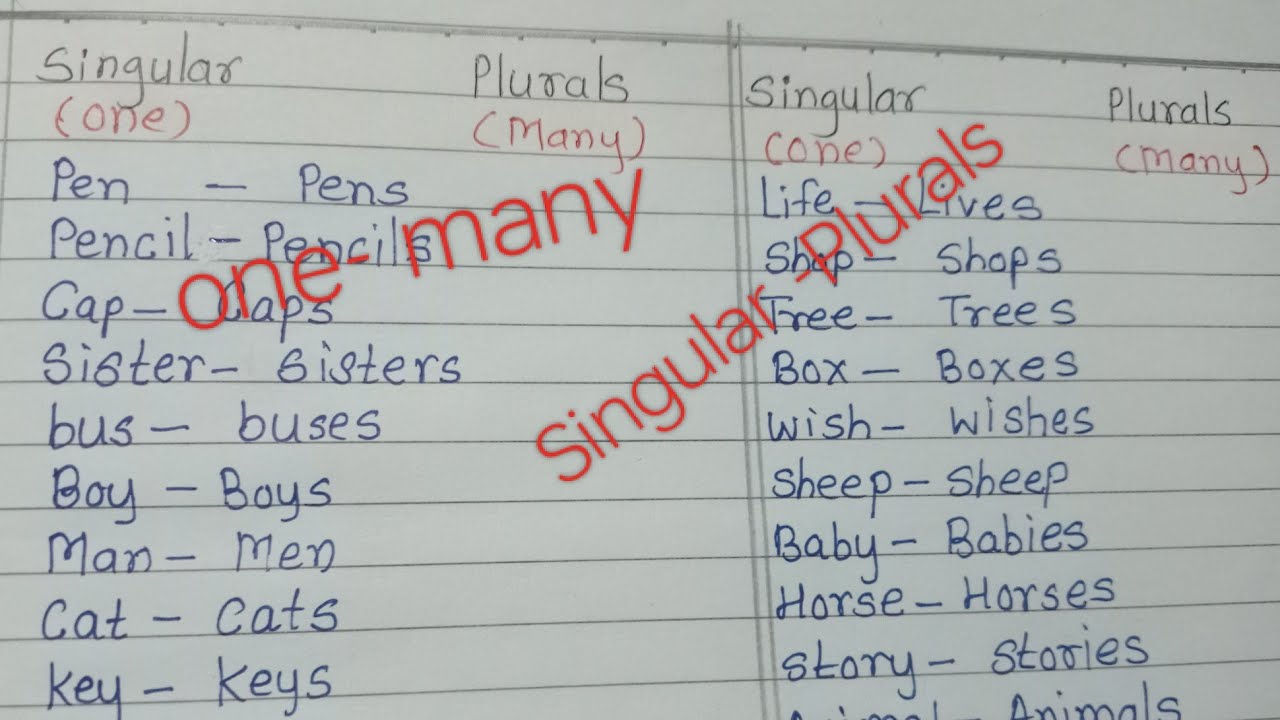 Singular Plurals
(one) (Many)
Pen - Pens
Pencil - Pencils
Cap - Caps
Sister - Sisters
bus - buses
Boy - Boys
Man - Men
Cat - Cats
Key - Keys
Singular Plurals
(one) (many)
Life - Lives
Shop - Shops
Tree - Trees
Box - Boxes
Wish - Wishes
Sheep - Sheep
Baby - Babies
Horse - Horses
Story - Stories
Animal - Animals
one many
Singular - Plurals